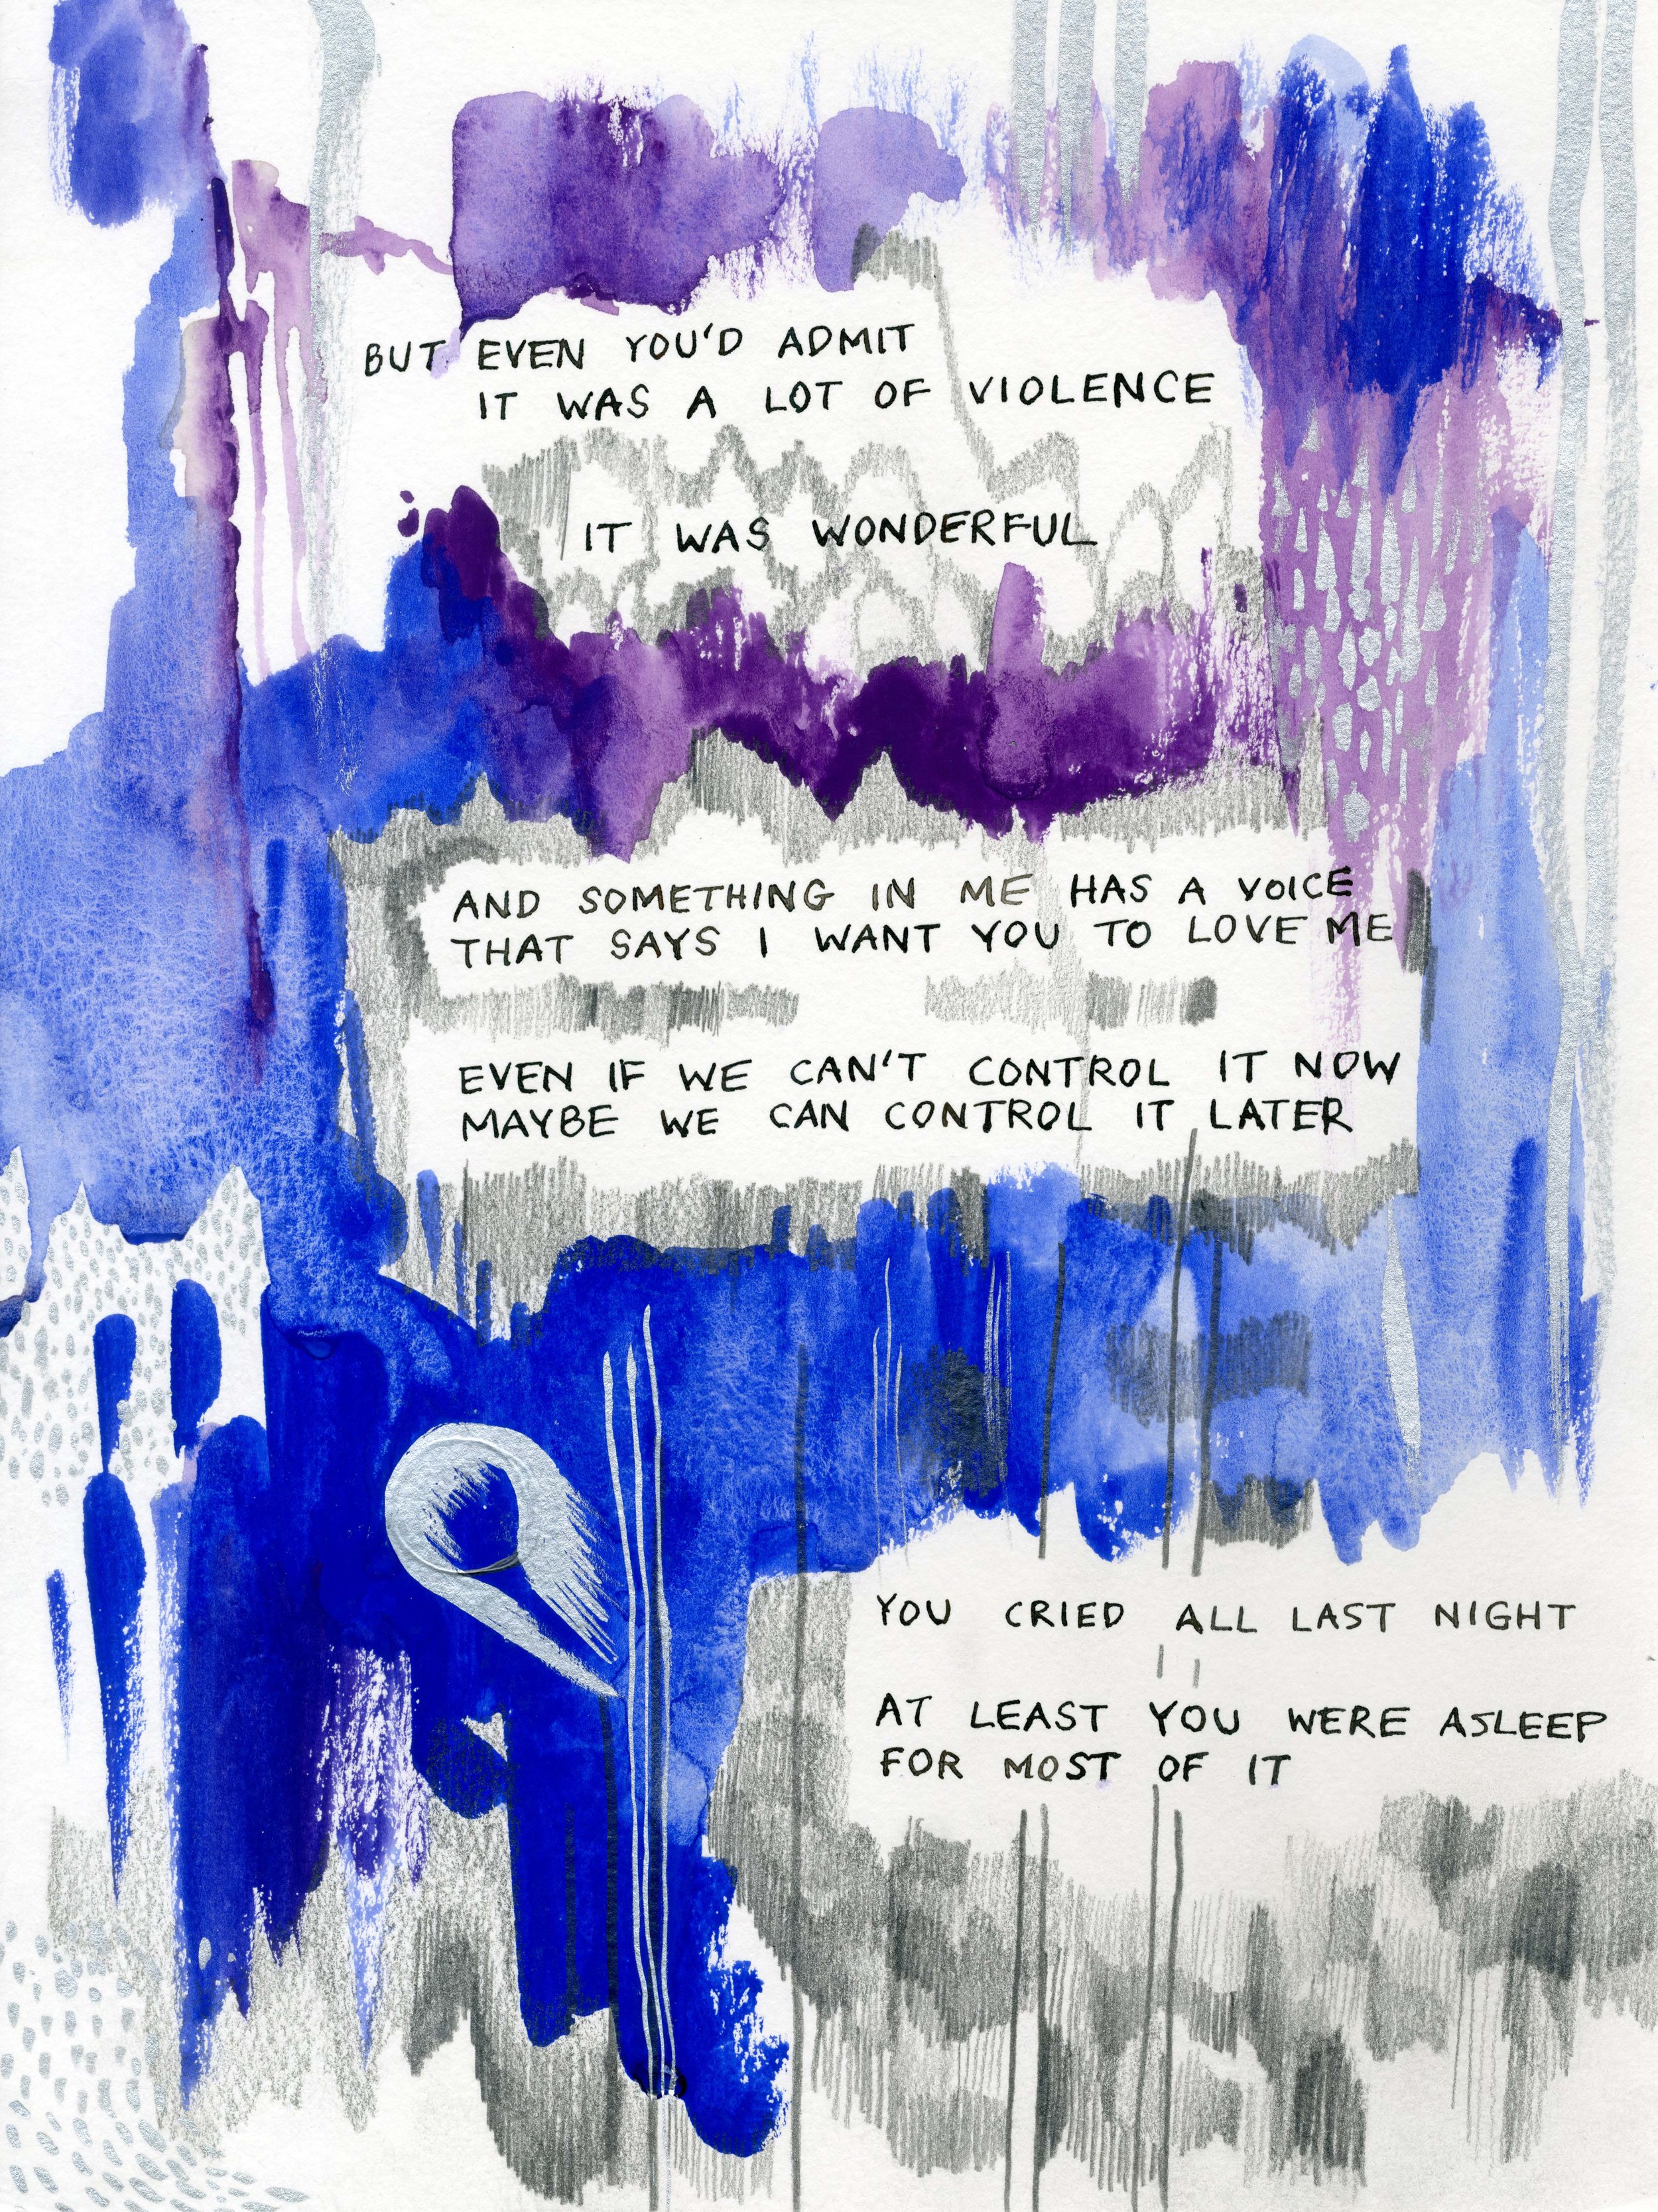 BUT EVEN YOU'D ADMIT
IT WAS A LOT OF VIOLENCE
IT WAS WONDERFUL
AND SOMETHING IN ME HAS A VOICE
THAT SAYS I WANT YOU TO LOVE ME
EVEN IF WE CAN'T CONTROL IT NOW
MAYBE WE CAN CONTROL IT LATER
YOU CRIED ALL LAST NIGHT
AT LEAST YOU WERE ASLEEP
FOR MOST OF IT